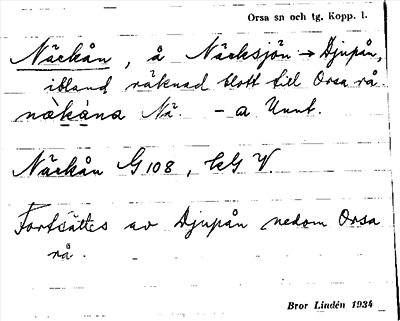 Orsa sn och tg. Kopp. l.
Näckån, å Näcksjön → Djupån,
ibland räknad blott till Orsa rå.
Nä. - a Unnt.
Näckån G 108, kG V.
Fortsättes av Djupån nedom Orsa
rå.
Bror Lindén 1934